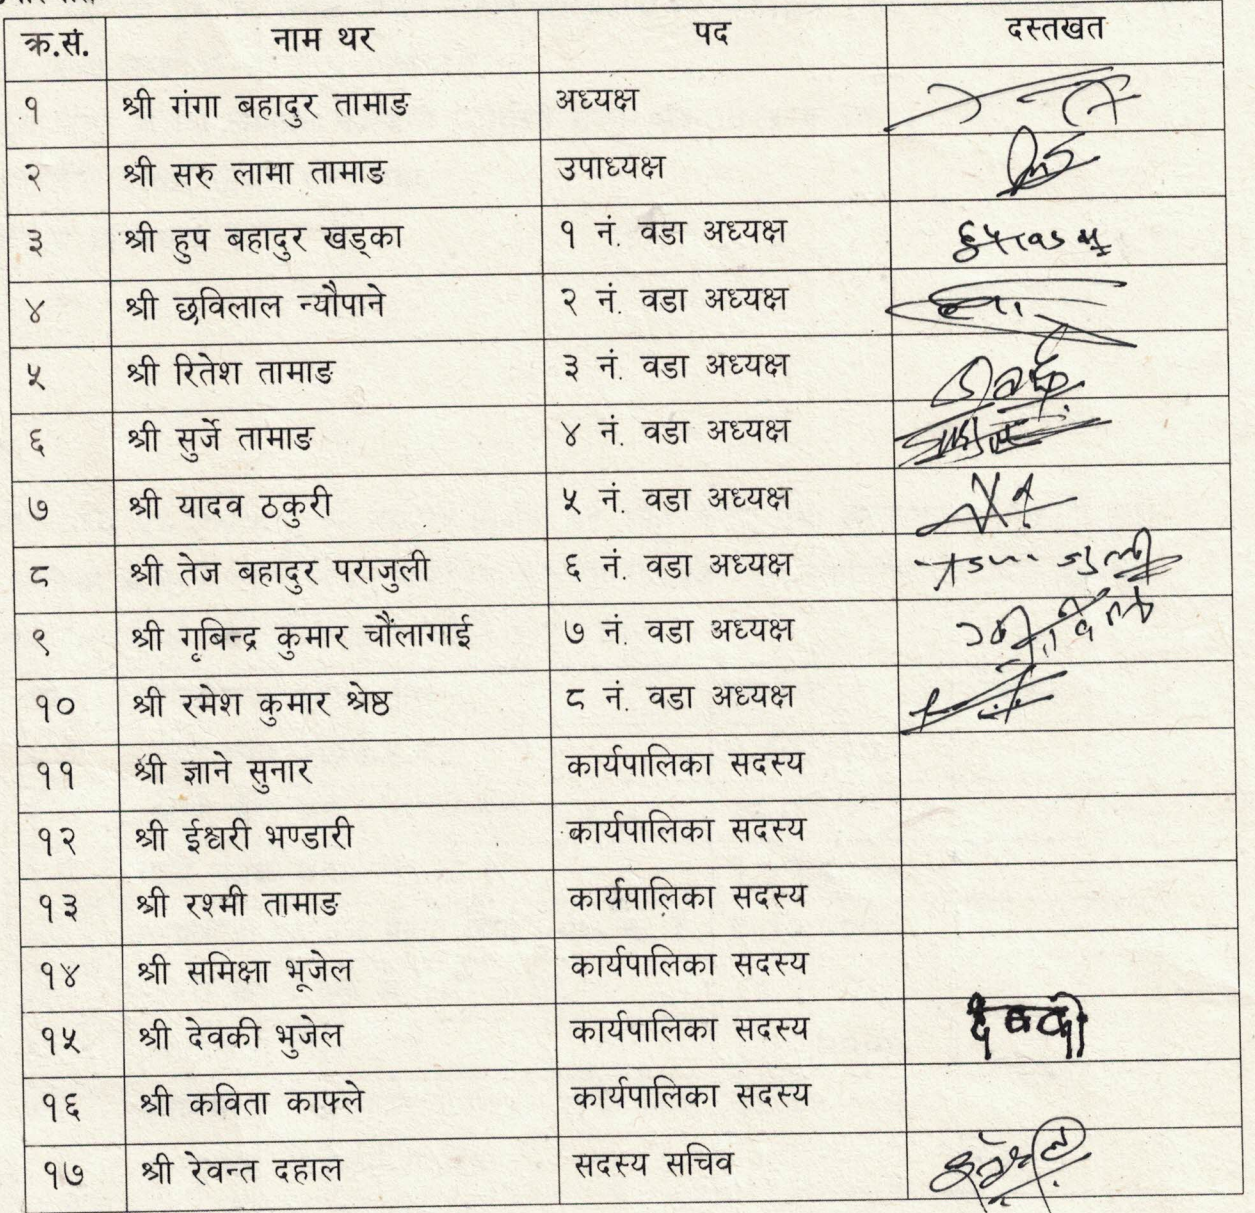 क्र.सं. नाम थर पद दस्तखत
१ श्री गंगा बहादुर तामाङ अध्यक्ष
२ श्री सरु लामा तामाङ उपाध्यक्ष
३ श्री हुप बहादुर खड्का १ नं. वडा अध्यक्ष
४ श्री छविलाल न्यौपाने २ नं. वडा अध्यक्ष
५ श्री रितेश तामाङ ३ नं. वडा अध्यक्ष
६ श्री सुर्जे तामाङ ४ नं. वडा अध्यक्ष
७ श्री यादव ठकुरी ५ नं. वडा अध्यक्ष
८ श्री तेज बहादुर पराजुली ६ नं. वडा अध्यक्ष
९ श्री गृबिन्द्र कुमार चौंलागाई ७ नं. वडा अध्यक्ष
१० श्री रमेश कुमार श्रेष्ठ ८ नं. वडा अध्यक्ष
११ श्री ज्ञाने सुनार कार्यपालिका सदस्य
१२ श्री ईश्वरी भण्डारी कार्यपालिका सदस्य
१३ श्री रश्मी तामाङ कार्यपालिका सदस्य
१४ श्री समिक्षा भूजेल कार्यपालिका सदस्य
१५ श्री देवकी भुजेल कार्यपालिका सदस्य
१६ श्री कविता काफ्ले कार्यपालिका सदस्य
१७ श्री रेवन्त दहाल सदस्य सचिव